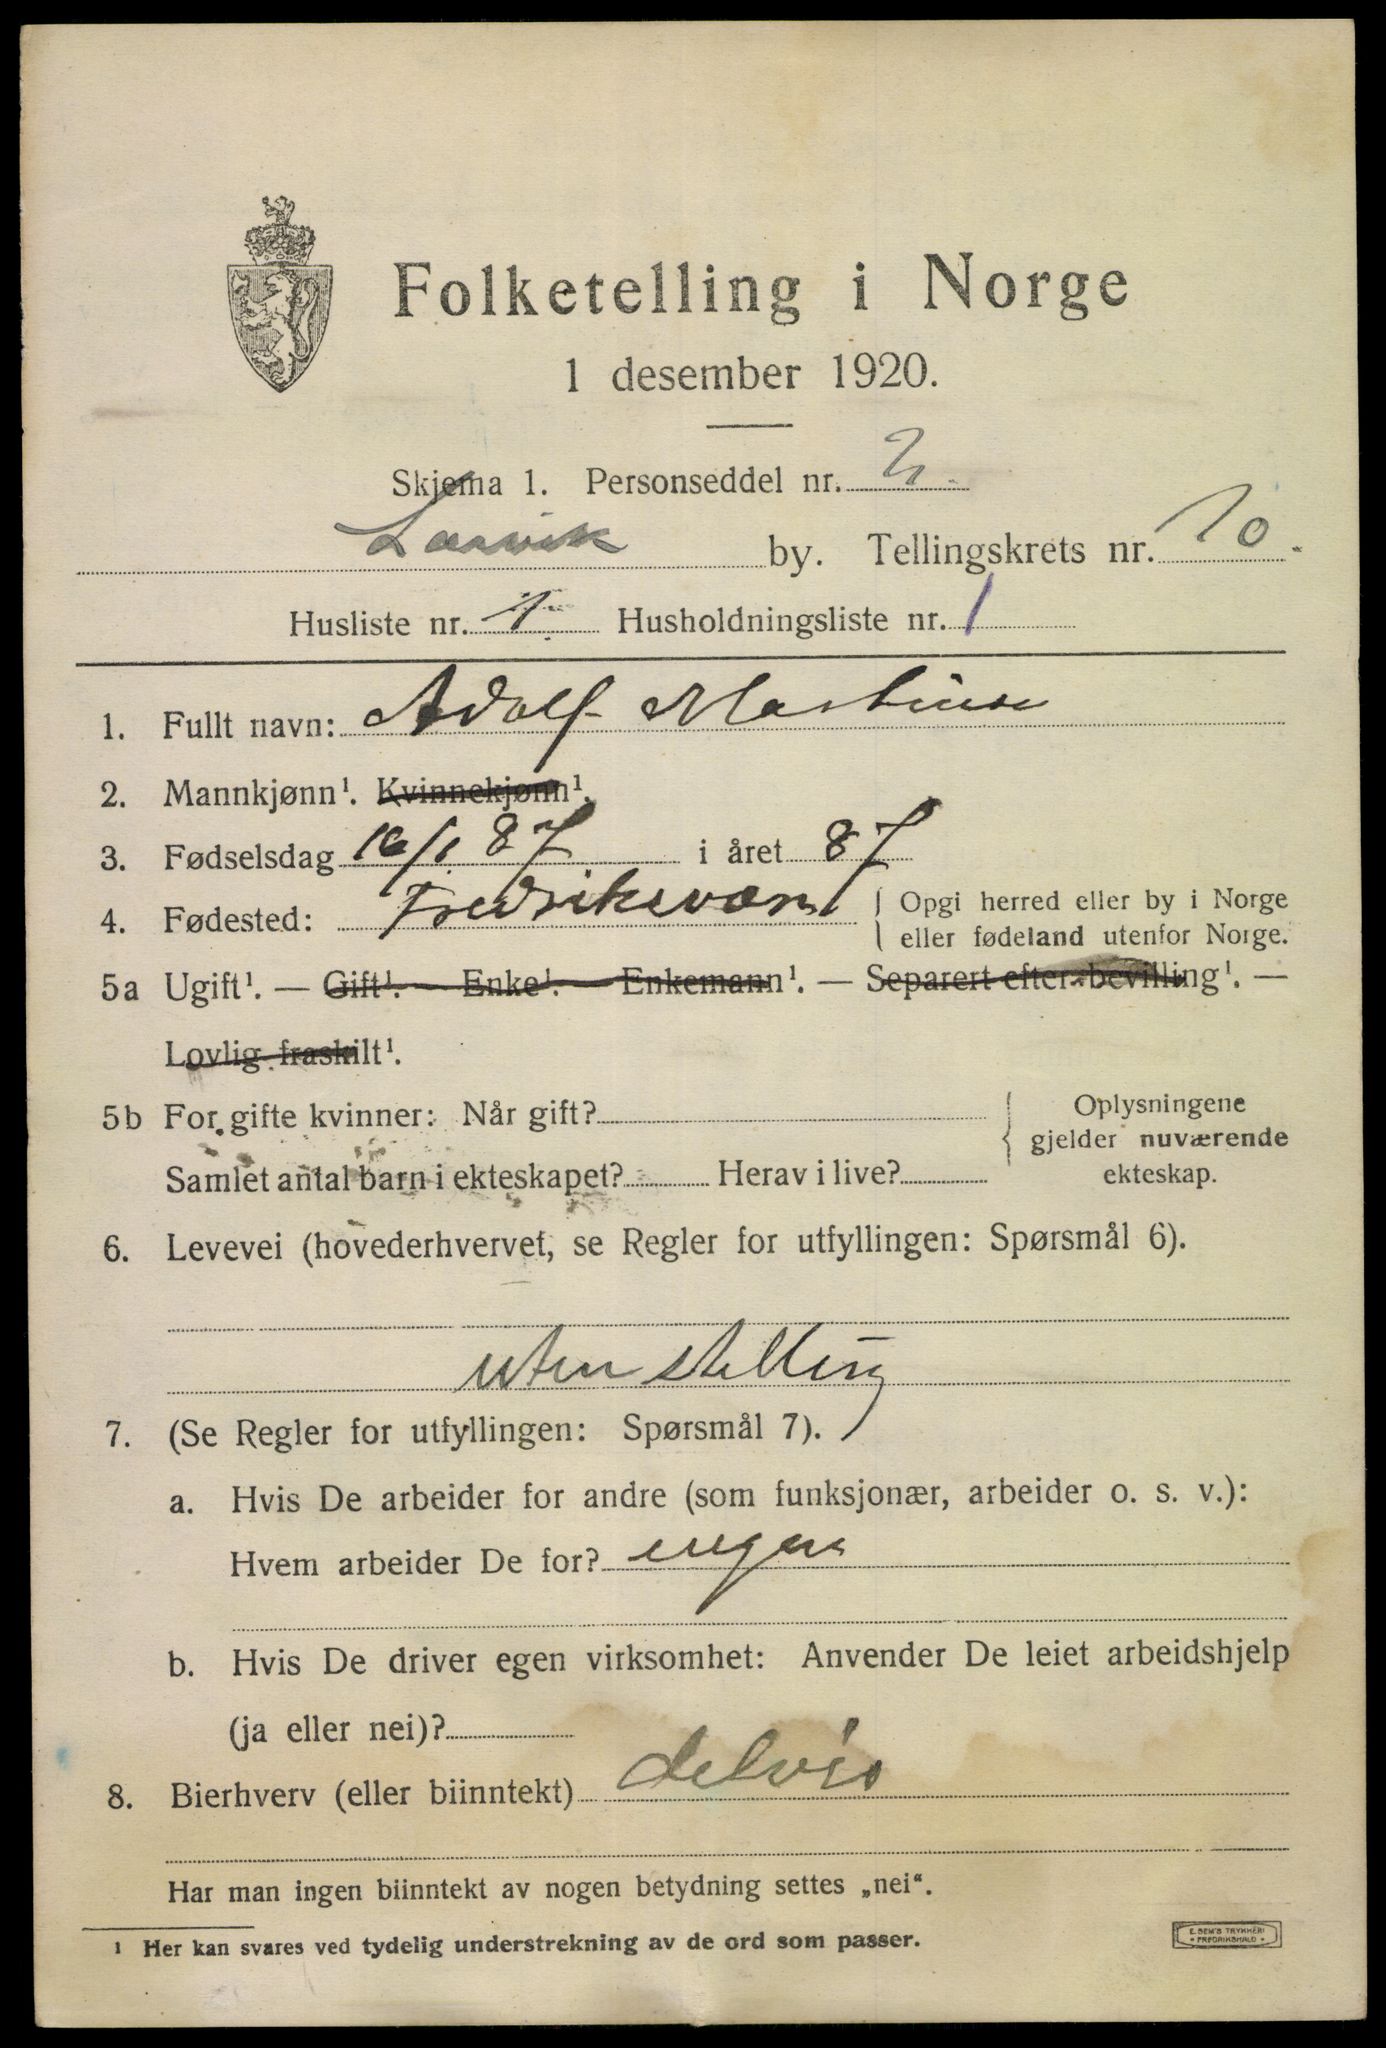 Folketelling i Norge
1 desember 1920.
Skjema 1. Personseddel nr. 2.
Larvik by. Tellingskrets nr. 10.
Husliste nr. 1 Husholdningsliste nr. 1
1. Fullt navn: Adolf Martinsen
2. Mannkjønn¹. Kvinnekjønn¹.
3. Fødselsdag 16/1 87 i året 87
4. Fødested: Fredriksværn { Opgi herred eller by i Norge
eller fødeland utenfor Norge.
5a Ugift¹. — Gift¹. — Enke¹. — Enkemann¹. — Separert efter bevilling¹. —
Lovlig fraskilt¹.
5b For gifte kvinner: Når gift? { Oplysningene
gjelder nuværende
Samlet antal barn i ekteskapet? Herav i live? ekteskap.
6. Levevei (hovederhvervet, se Regler for utfyllingen: Spørsmål 6).
uten stelling
7. (Se Regler for utfyllingen: Spørsmål 7).
a. Hvis De arbeider for andre (som funksjonær, arbeider o. s. v.):
Hvem arbeider De for? ingen
b. Hvis De driver egen virksomhet: Anvender De leiet arbeidshjelp
(ja eller nei)?
8. Bierhverv (eller biinntekt) delvis
Har man ingen biinntekt av nogen betydning settes „nei“.
¹ Her kan svares ved tydelig understrekning av de ord som passer.
E. SEM'S TRYKKERI
FREDRIKSHALD